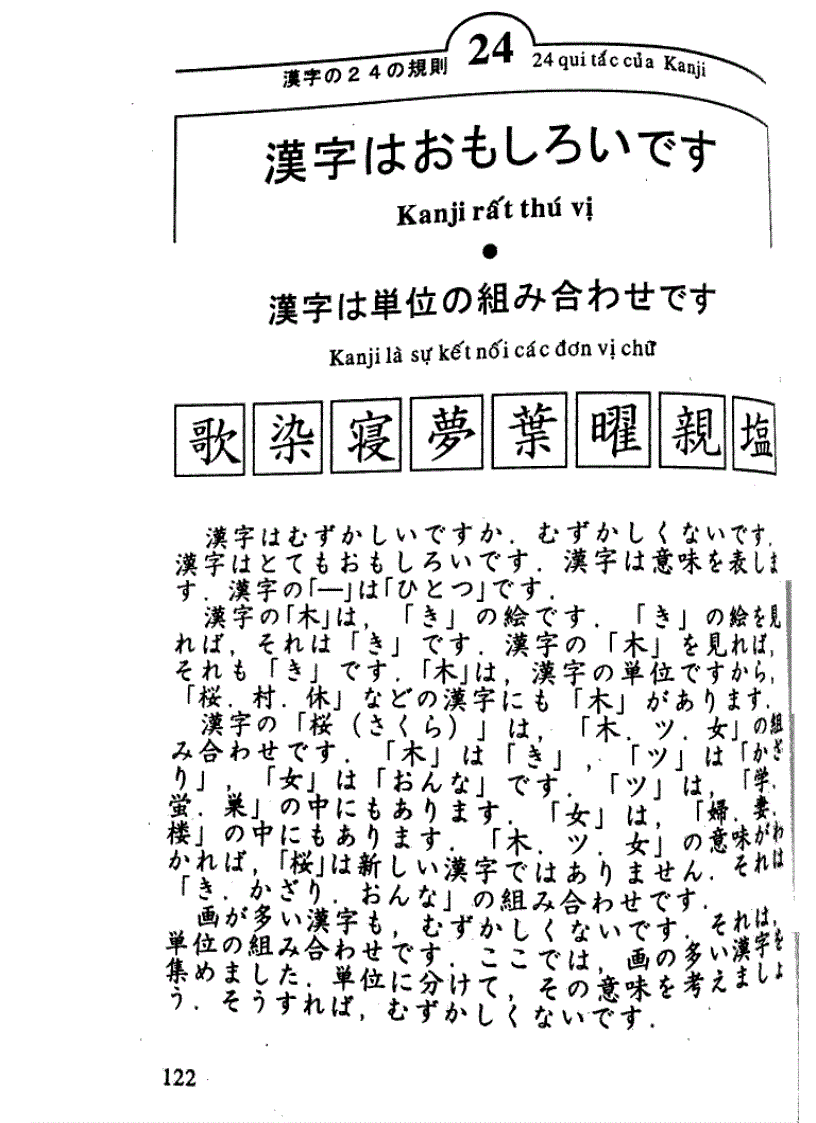 漢字の24の規則 24 24 qui tắc của Kanji
漢字はおもしろいです
Kanji rất thú vị
漢字は単位の組み合わせです
Kanji là sự kết nối các đơn vị chữ
歌 染 寝 夢 葉 曜 親 塩
漢字はむずかしいですか. むずかしくないです.
漢字はとてもおもしろいです. 漢字は意味を表しま
す. 漢字の「一」は「ひとつ」です.
漢字の「木」は, 「き」の絵です. 「き」の絵を見
れば, それは「き」です. 漢字の「木」を見れば,
それも「き」です.「木」は, 漢字の単位ですから,
「桜. 村. 休」などの漢字にも「木」があります.
漢字の「桜（さくら）」は, 「木. ツ. 女」の組
み合わせです. 「木」は「き」, 「ツ」は「かざ
り」, 「女」は「おんな」です. 「ツ」は, 「学.
蛍. 巣」の中にもあります. 「女」は, 「婦. 妻.
楼」の中にもあります. 「木. ツ. 女」の意味がわ
かれば,「桜」は新しい漢字ではありません. それは
「き. かざり. おんな」の組み合わせです.
画が多い漢字も, むずかしくないです. それは,
単位の組み合わせです. ここでは, 画の多い漢字を
集めました. 単位に分けて, その意味を考えましょ
う. そうすれば, むずかしくないです.
122